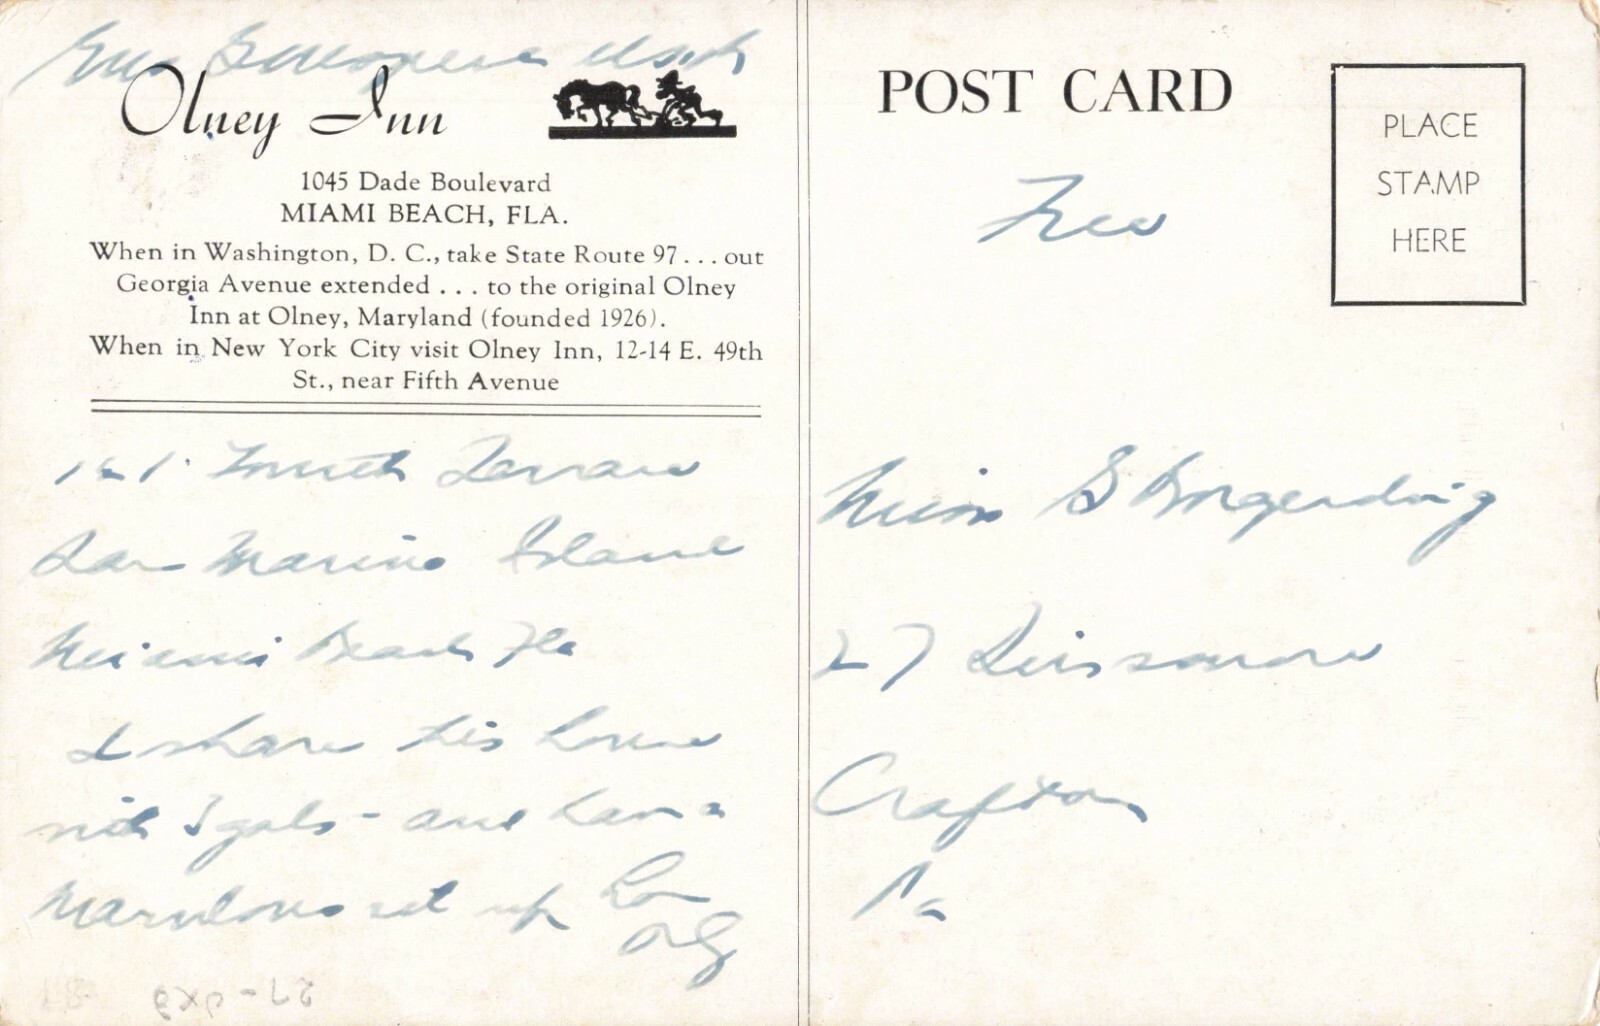 Olney Inn
1045 Dade Boulevard
MIAMI BEACH, FLA.
When in Washington, D. C., take State Route 97 . . . out
Georgia Avenue extended . . . to the original Olney
Inn at Olney, Maryland (founded 1926).
When in New York City visit Olney Inn, 12-14 E. 49th
St., near Fifth Avenue
Fourth Terrace
San Marino Island
Miami Beach Fla
I share this house
with 3 gals - and have a
Marvelous set up
POST CARD
PLACE
STAMP
HERE
Free
Miss G Borgerding
27
Crafton
Pa